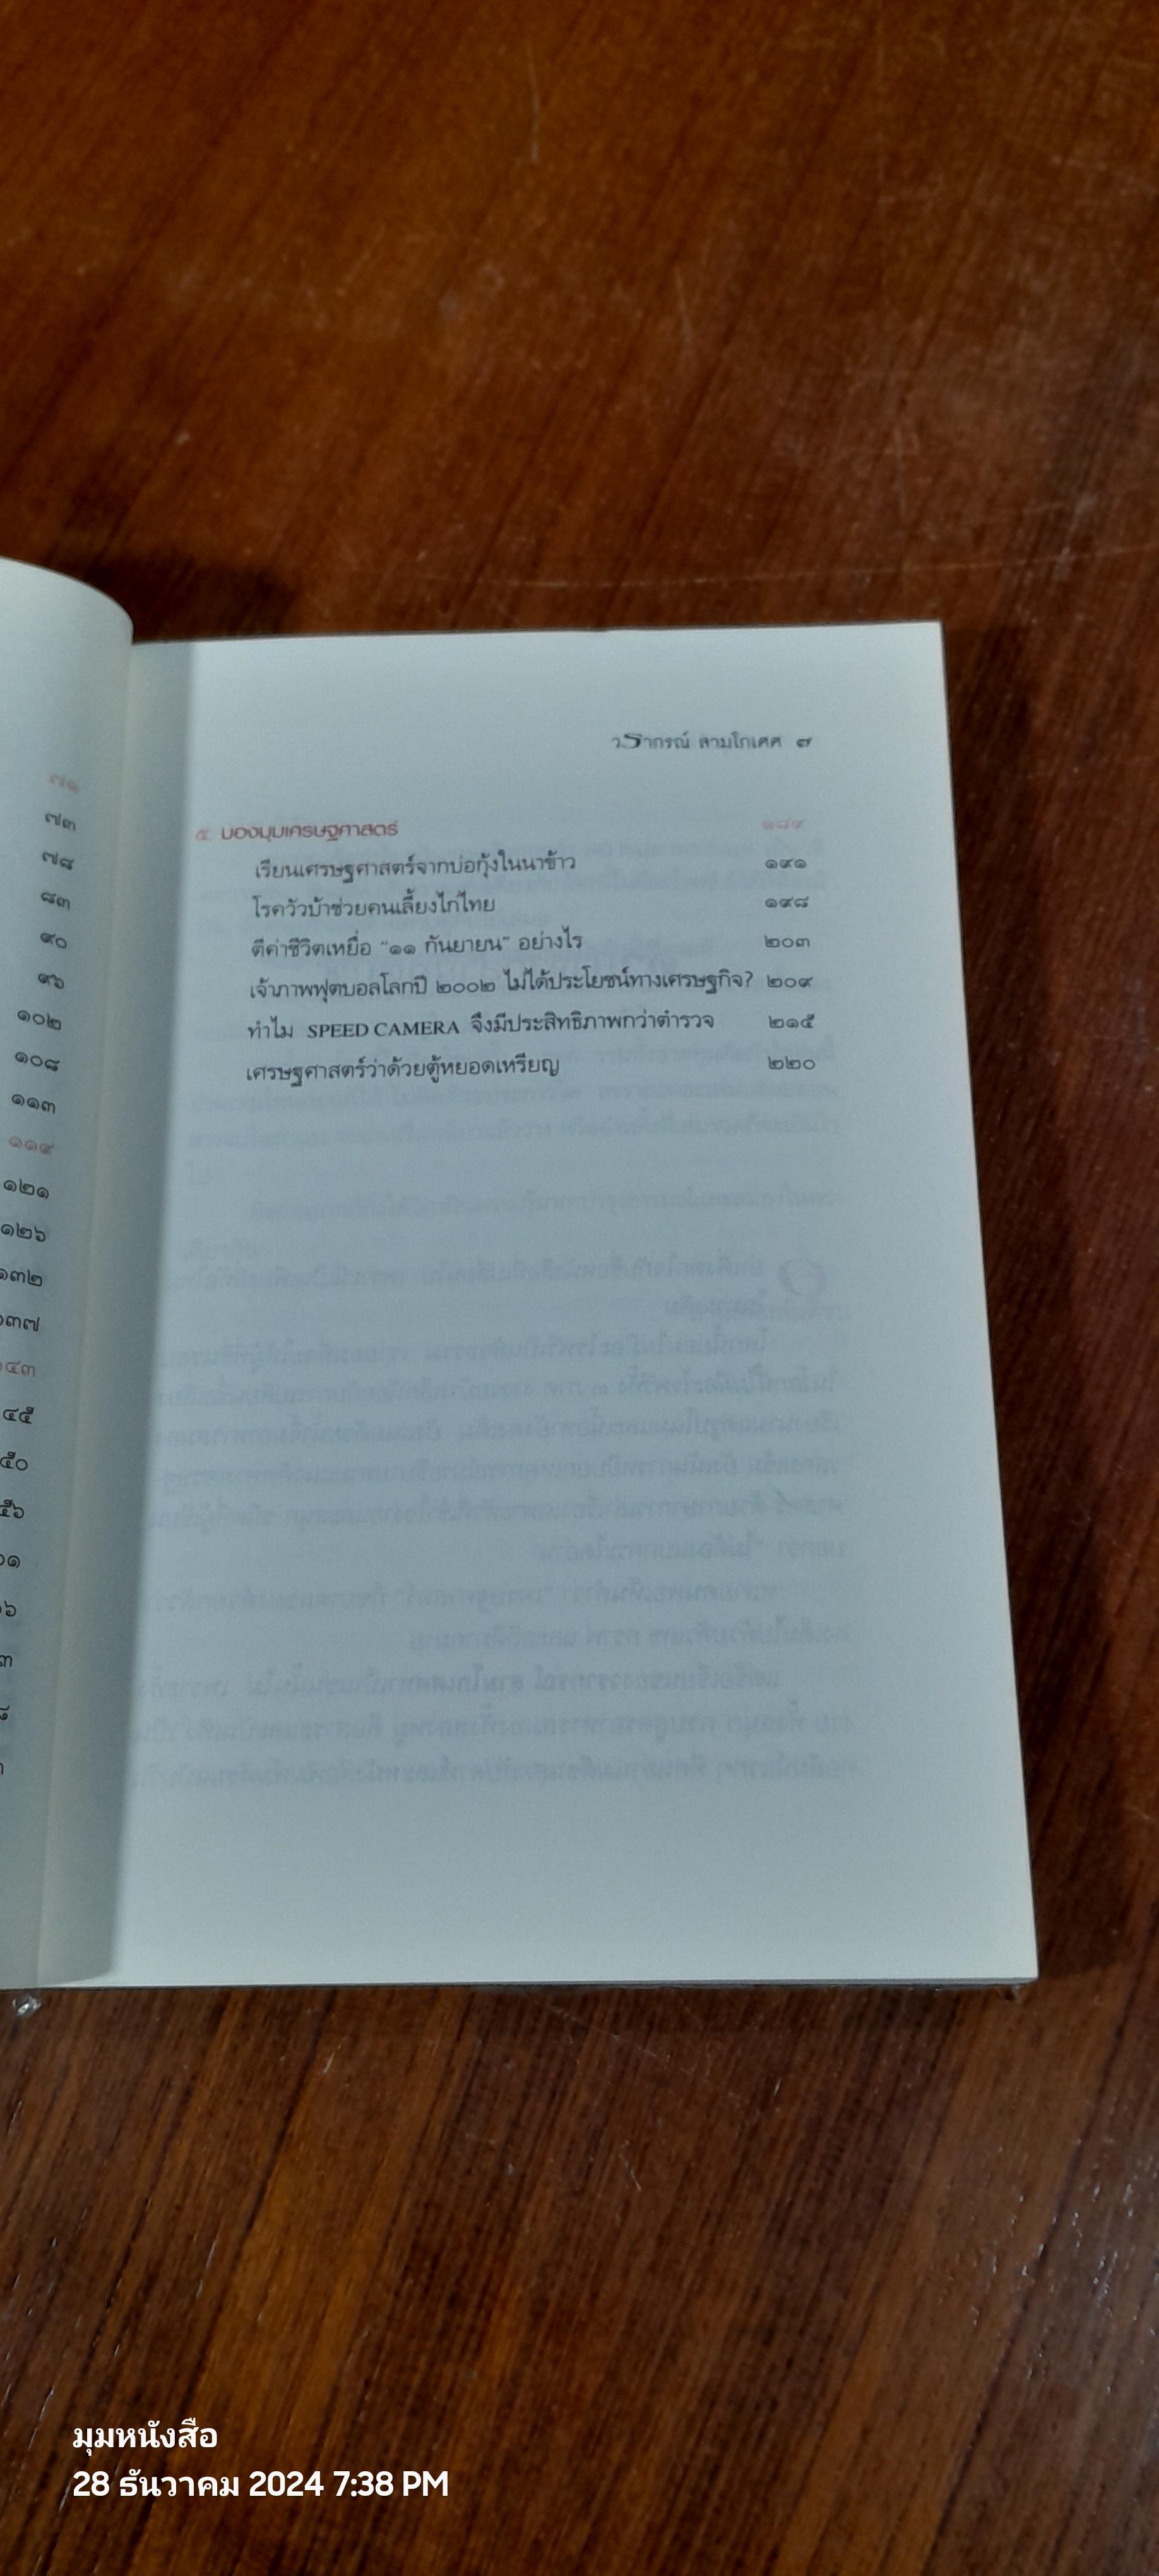 วรากรณ์ สามโกเศศ ๗
๕ มองมุมเศรษฐศาสตร์ ๑๘๙
เรียนเศรษฐศาสตร์จากบ่อกุ้งในนาข้าว ๑๙๑
โรควัวบ้าช่วยคนเลี้ยงไก่ไทย ๑๙๘
ตีค่าชีวิตเหยื่อ “๑๑ กันยายน” อย่างไร ๒๐๓
เจ้าภาพฟุตบอลโลกปี ๒๐๐๒ ไม่ได้ประโยชน์ทางเศรษฐกิจ? ๒๐๙
ทำไม SPEED CAMERA จึงมีประสิทธิภาพกว่าตำรวจ ๒๑๕
เศรษฐศาสตร์ว่าด้วยตู้หยอดเหรียญ ๒๒๐
๗๑
๗๓
๗๘
๘๓
๙๐
๙๖
๑๐๒
๑๐๘
๑๑๓
๑๑๙
๑๒๑
๑๒๖
๑๓๒
๑๓๗
๑๔๓
๔๕
๕๐
๕๖
มุมหนังสือ
28 ธันวาคม 2024 7:38 PM